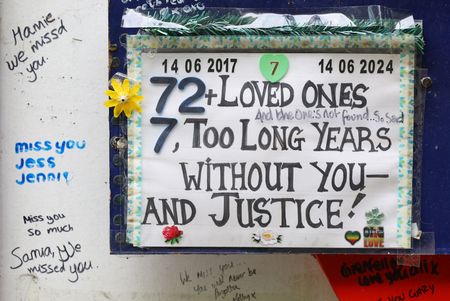 Hamie
We missd
you.
miss you
Jess
Jennie
Miss you
so much
We
missed you.
14 06 2017
7
14 06 2024
72+ LOVED ONES
And the One's not found.. So Sad
7, TOO LONG YEARS
WITHOUT YOU—
AND JUSTICE!
LOVE
We miss you...
you will never be